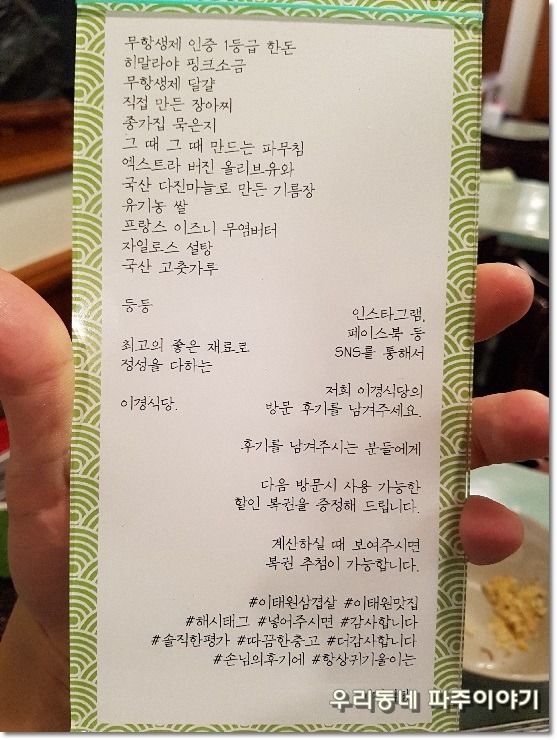 무항생제 인증 1등급 한돈
히말라야 핑크소금
무항생제 달걀
직접 만든 장아찌
종가집 묵은지
그 때 그 때 만드는 파무침
엑스트라 버진 올리브유와
국산 다진마늘로 만든 기름장
유기농 쌀
프랑스 이즈니 무염버터
자일로스 설탕
국산 고춧가루
등등
최고의 좋은 재료로
정성을 다하는
이경식당.
인스타그램,
페이스북 등
SNS를 통해서
저희 이경식당의
방문 후기를 남겨주세요.
후기를 남겨주시는 분들에게
다음 방문시 사용 가능한
할인 복권을 증정해 드립니다.
계산하실 때 보여주시면
복권 추첨이 가능합니다.
#이태원삼겹살 #이태원맛집
#해시태그 #넣어주시면 #감사합니다
#솔직한평가 #따끔한충고 #더감사합니다
#손님의후기에 #항상귀기울이는
우리동네 파주이야기